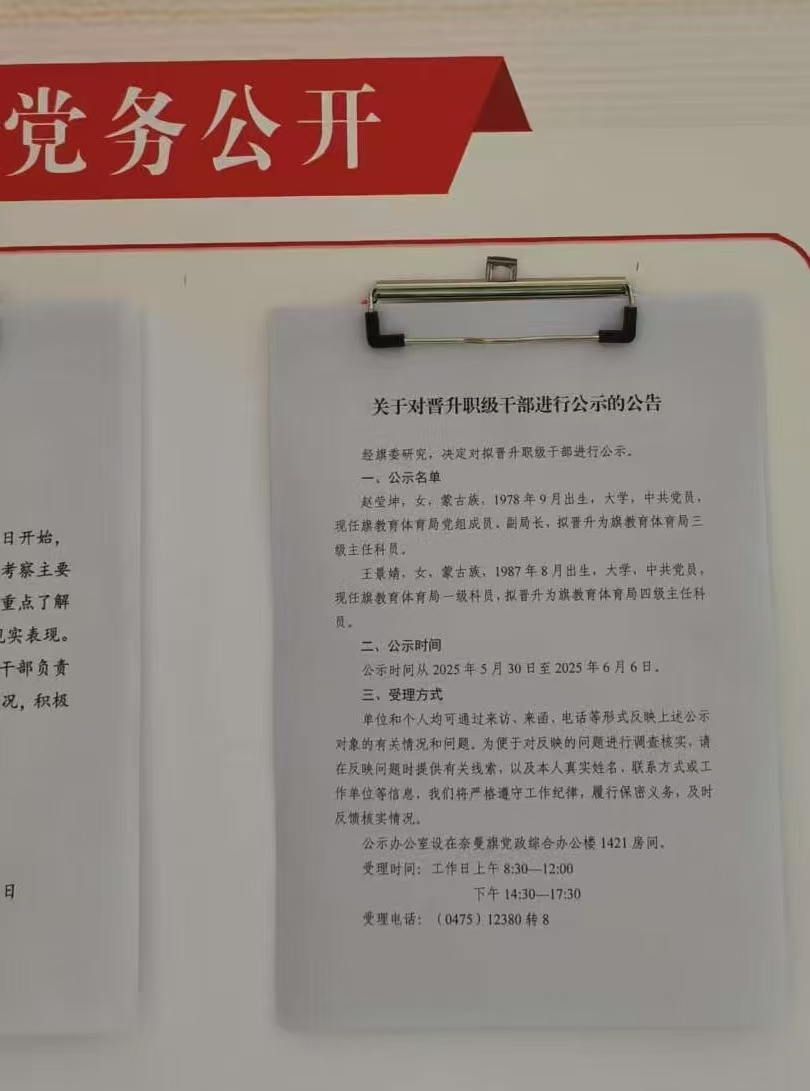 党务公开
日开始，
考察主要
重点了解
现实表现。
干部负责
况，积极
日
关于对晋升职级干部进行公示的公告
经旗委研究，决定对拟晋升职级干部进行公示。
一、公示名单
赵莹坤，女，蒙古族，1978年9月出生，大学，中共党员，
现任旗教育体育局党组成员、副局长，拟晋升为旗教育体育局三
级主任科员。
王景婧，女，蒙古族，1987年8月出生，大学，中共党员，
现任旗教育体育局一级科员，拟晋升为旗教育体育局四级主任科
员。
二、公示时间
公示时间从2025年5月30日至2025年6月6日。
三、受理方式
单位和个人均可通过来访、来函、电话等形式反映上述公示
对象的有关情况和问题。为便于对反映的问题进行调查核实，请
在反映问题时提供有关线索，以及本人真实姓名，联系方式或工
作单位等信息，我们将严格遵守工作纪律，履行保密义务，及时
反馈核实情况。
公示办公室设在奈曼旗党政综合办公楼1421房间。
受理时间：工作日上午8:30—12:00
下午14:30—17:30
受理电话：（0475）12380转8